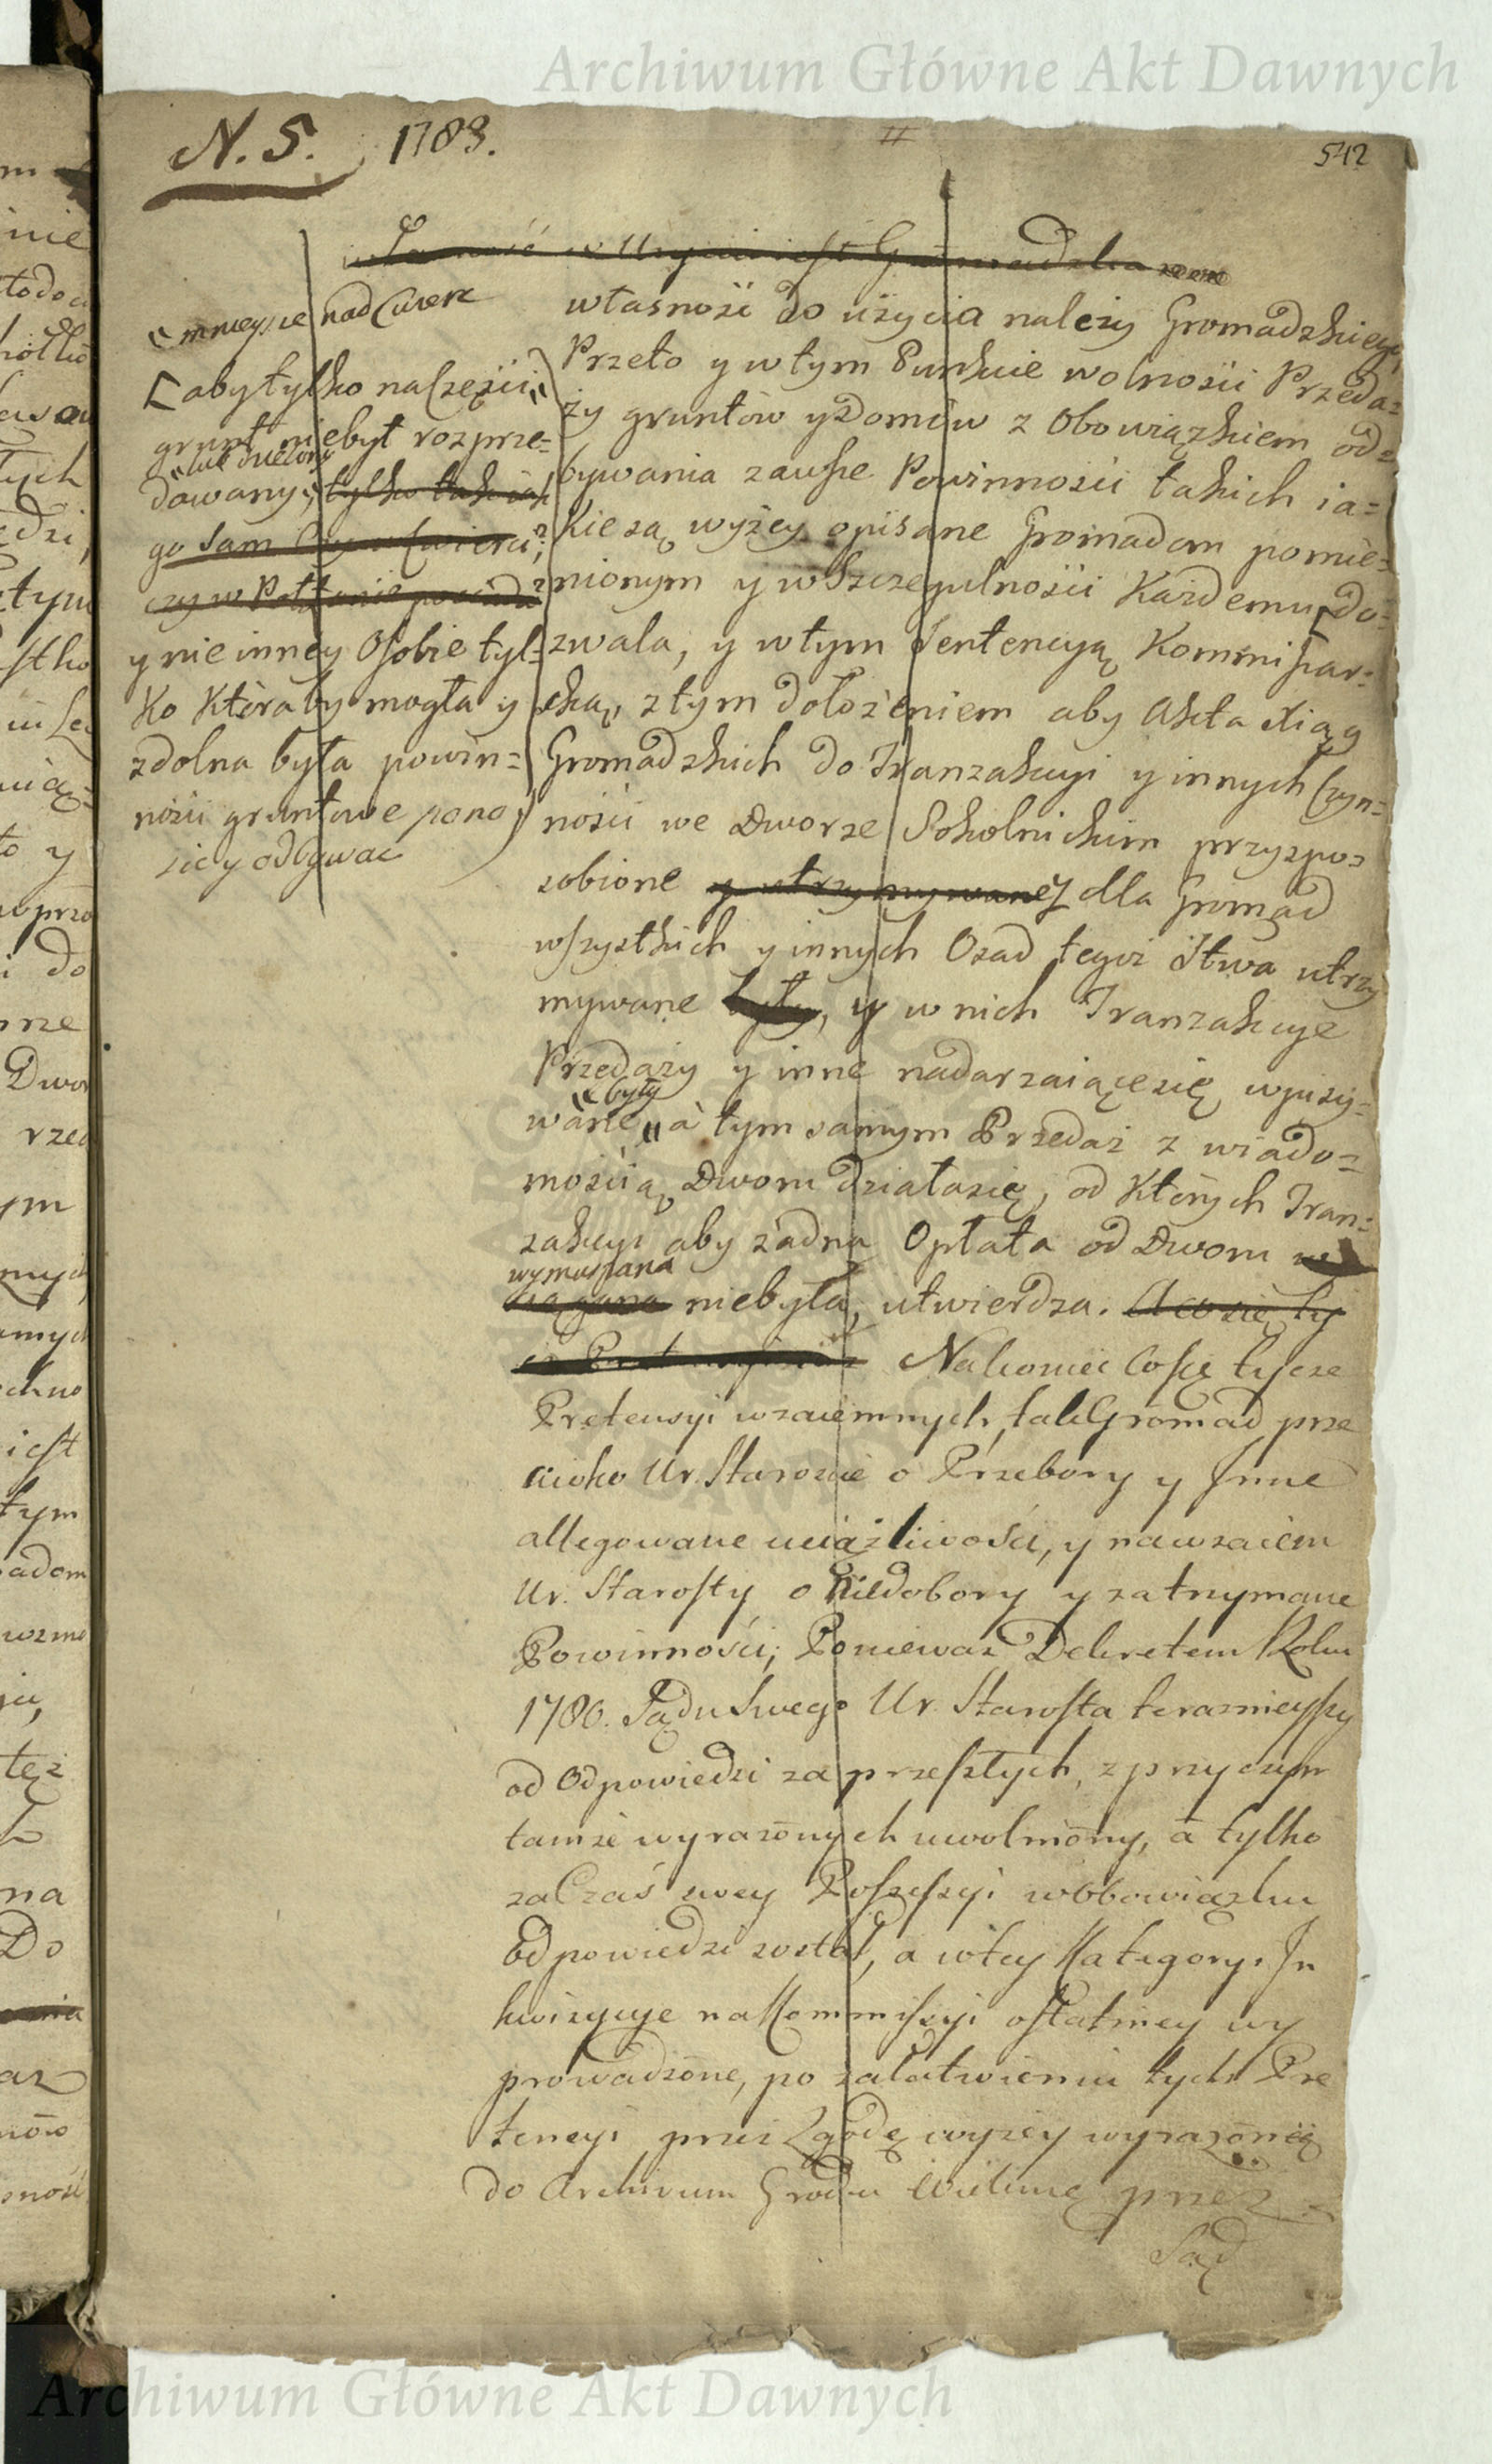 Archiwum Główne Akt Dawnych
N. 5. 1783.
542
mnieysze nad Cwierc
aby tylko na Części
grunt niebył rozprze=
dawany
y nie inney Osobie tyl=
Ko Która by mogła y
zdolna była powin=
ności gruntowe pono
sic y odbywac
własności do użycia należy Gromadzkiey,
Przeto y w tym Punkcie wolności Przeda=
ży gruntów y Domów z Obowiązkiem od=
bywania zawsze Powinności takich ia=
kie są wyżey opisane Gromadom pomie=
nionym y w Szczegulności Każdemu do=
zwala, y w tym Sentencyą Kommissar=
ską, z tym dołożeniem aby Akta Xiąg
Gromadzkich do Tranzakcyi y innych Czyn=
ności we Dworze Sokolnickim przyspo=
sobione dla Gromad
wszystkich y innych Osad tegoż Stwa utrzy
mywane y w nich Tranzakcye
Przedaży y inne nadarzaiące się wpisy=
były
wane, à tym samym Przedaż z wiado=
mością Dworu działa się, od Których Tran=
zakcyi aby żadna Opłata od Dworu
wymuszana
niebyła, utwierdza.
Nakoniec Co się tycze
Pretensyi wzaiemnych, tak Gromad prze
ciwko Ur. Staroscie o Przebory y Inne
allegowane uciążliwości, y nawzaiem
Ur. Starosty o Niedobory y zatrzymane
Powinności; Ponieważ Dekretem Roku
1780. Sądu Swego Ur. Starosta teraznieyszy
od Odpowiedzi za przeszłych, z przyczyn
tamże wyrażonych uwolniony, a tylko
za Czas swey Possessyi w obowiązku
Odpowiedzi został, a w tey Kategoryi In
kwizycye na Kommissyi ostatniey wy
prowadzone, po załatwieniu tych Pre
tensyi przez Zgodę wyżey wyrażoną
do Archivum Grodu przez
Sąd
Archiwum Główne Akt Dawnych